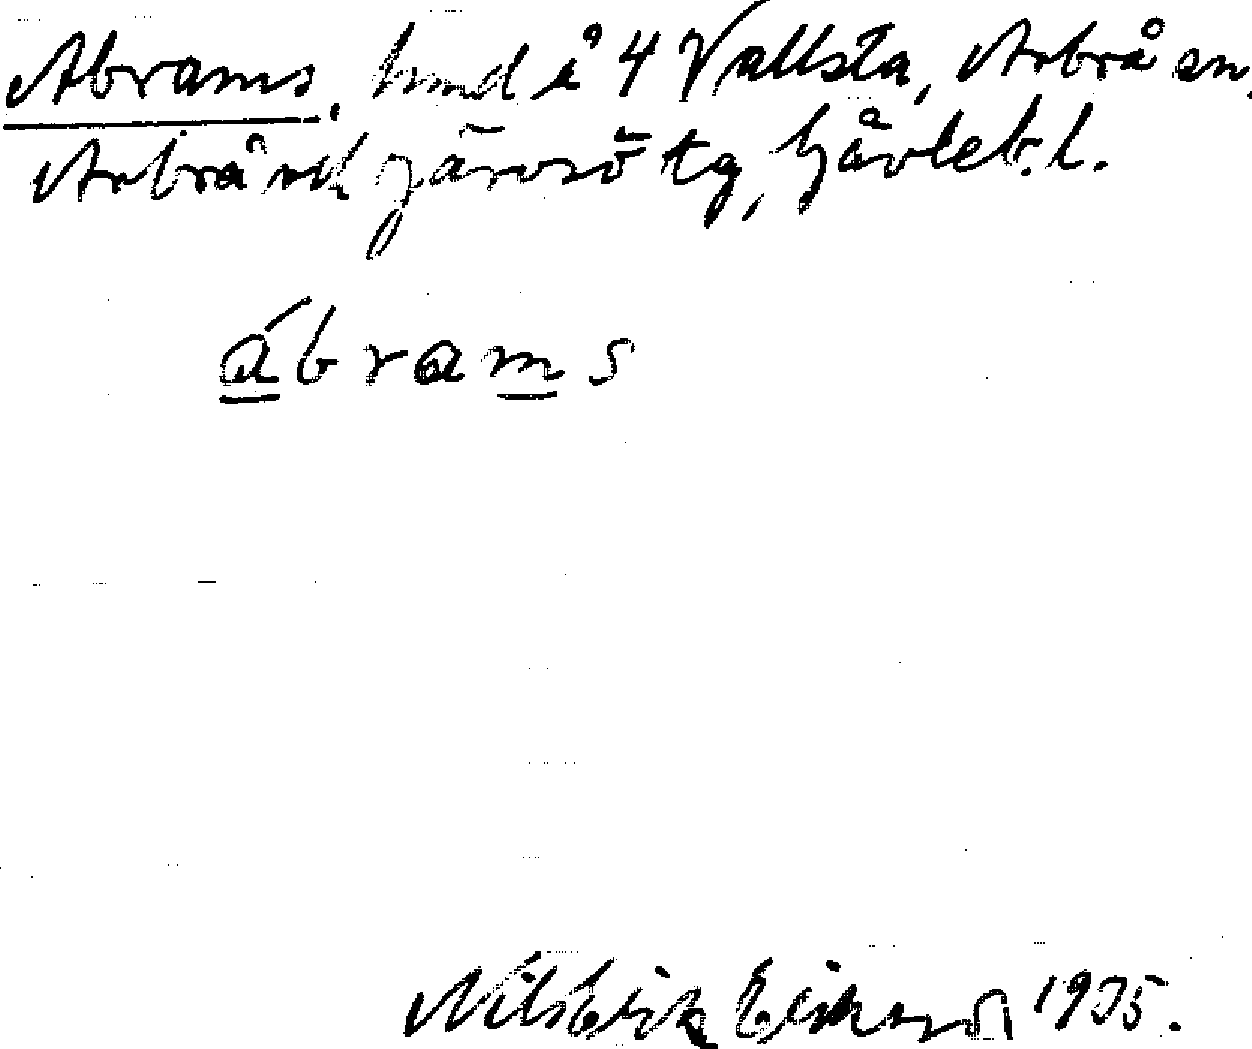 Abrams, hmd å 4 Vallsta, Arbrå sn,
Arbrå och Järvsö tg, Gävleb. l.
ábrams
Nils Erik Erikson 1935.